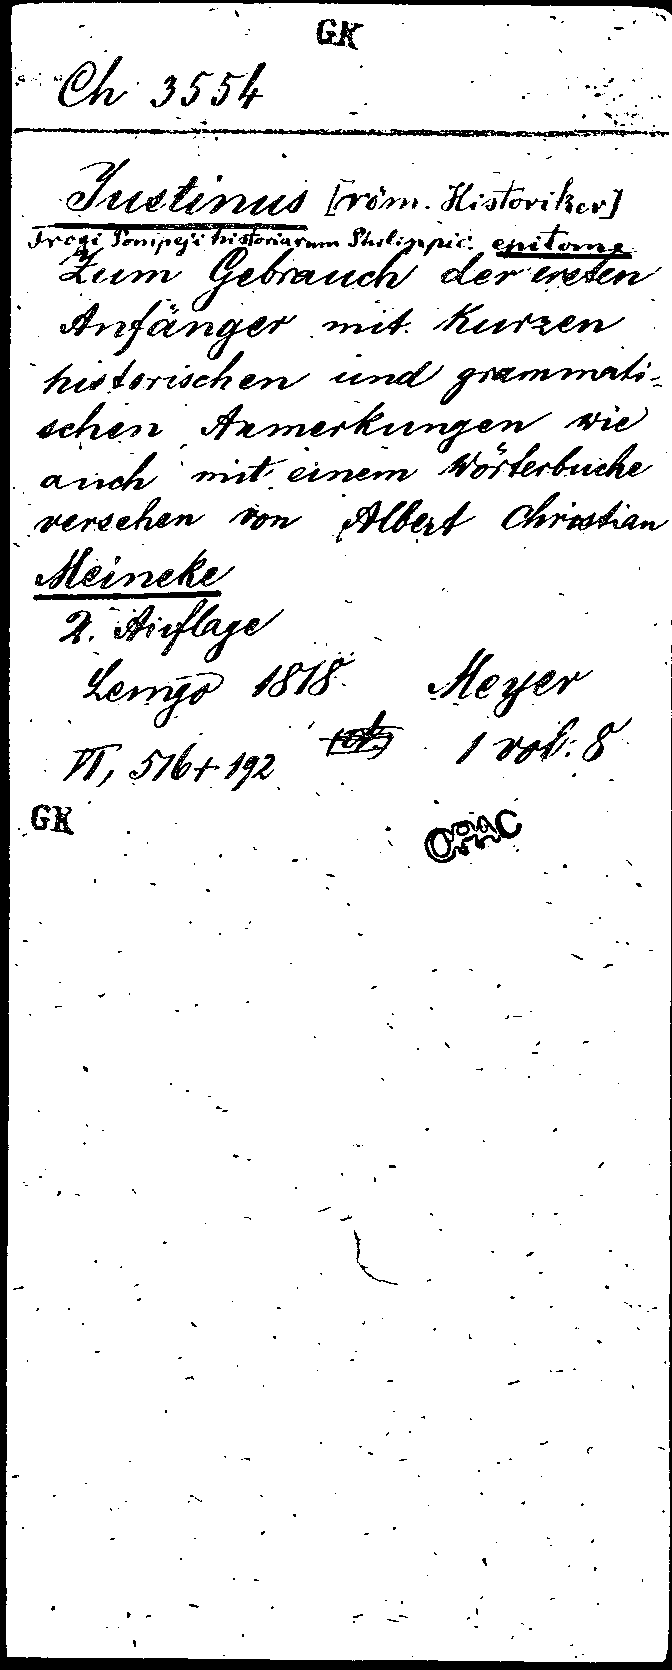 GK
Ch 3554
Justinus [röm. Historiker]
Trogi Pompeji historiarum Philippic. epitome
Zum Gebrauch der ersten
Anfänger mit kurzen
historischen und grammati-
schen Anmerkungen wie
auch mit einem Wörterbuche
versehen von Albert Christian
Meineke
2. Auflage
Lemgo 1818. Meyer
VI, 516+192 1 vol: 8
GK